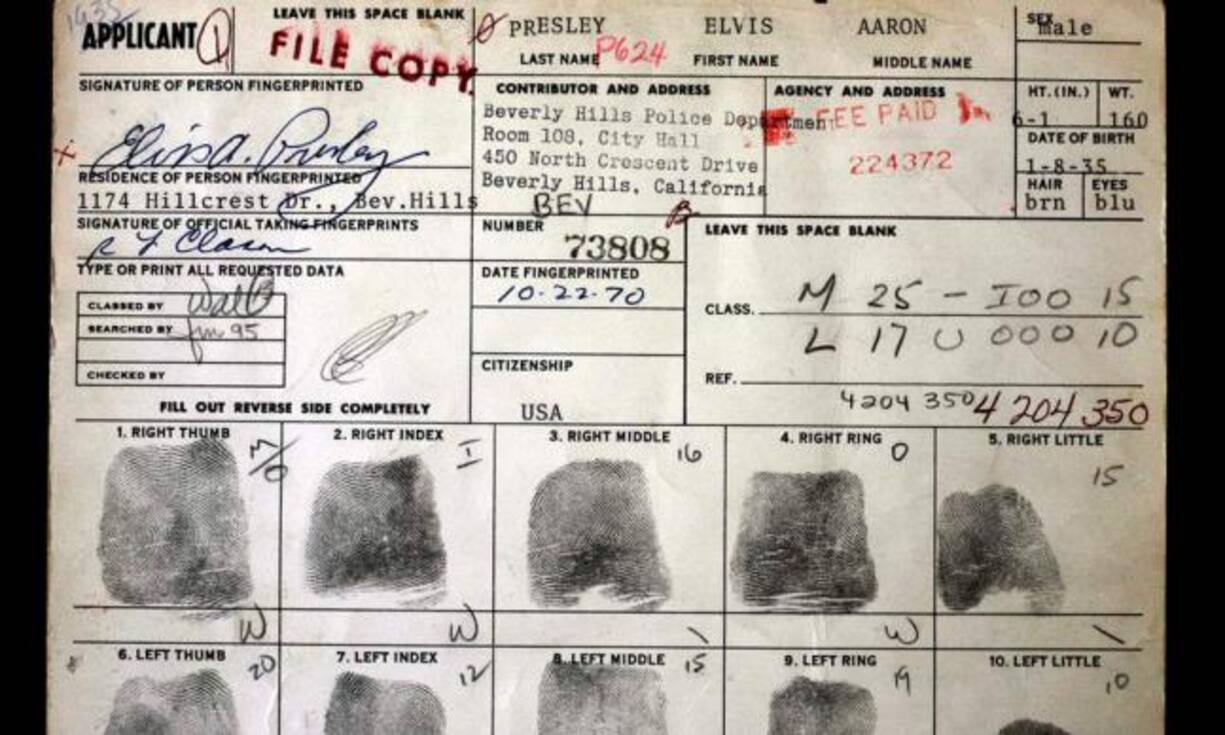 1635
APPLICANT 1
LEAVE THIS SPACE BLANK
FILE COPY
PRESLEY ELVIS AARON
LAST NAME P624 FIRST NAME MIDDLE NAME
SEX
male
SIGNATURE OF PERSON FINGERPRINTED
Elvis A. Presley
CONTRIBUTOR AND ADDRESS
Beverly Hills Police Department
Room 108, City Hall
450 North Crescent Drive
Beverly Hills, California
BEV
AGENCY AND ADDRESS
FEE PAID
224372
HT. (IN.) WT.
6-1 160
DATE OF BIRTH
1-8-35
HAIR EYES
brn blu
RESIDENCE OF PERSON FINGERPRINTED
1174 Hillcrest Dr., Bev.Hills
SIGNATURE OF OFFICIAL TAKING FINGERPRINTS
NUMBER
73808
LEAVE THIS SPACE BLANK
TYPE OR PRINT ALL REQUESTED DATA
DATE FINGERPRINTED
10-22-70
CLASSED BY
SEARCHED BY 95
CHECKED BY
CLASS. M 25 - IOO 15
L 17 U 000 10
CITIZENSHIP
USA
REF.
4204 350 4 204 350
FILL OUT REVERSE SIDE COMPLETELY
1. RIGHT THUMB
2. RIGHT INDEX I
3. RIGHT MIDDLE 16
4. RIGHT RING O
5. RIGHT LITTLE 15
W W \ W \
6. LEFT THUMB 20
7. LEFT INDEX 12
8. LEFT MIDDLE 15
9. LEFT RING M
10. LEFT LITTLE 10